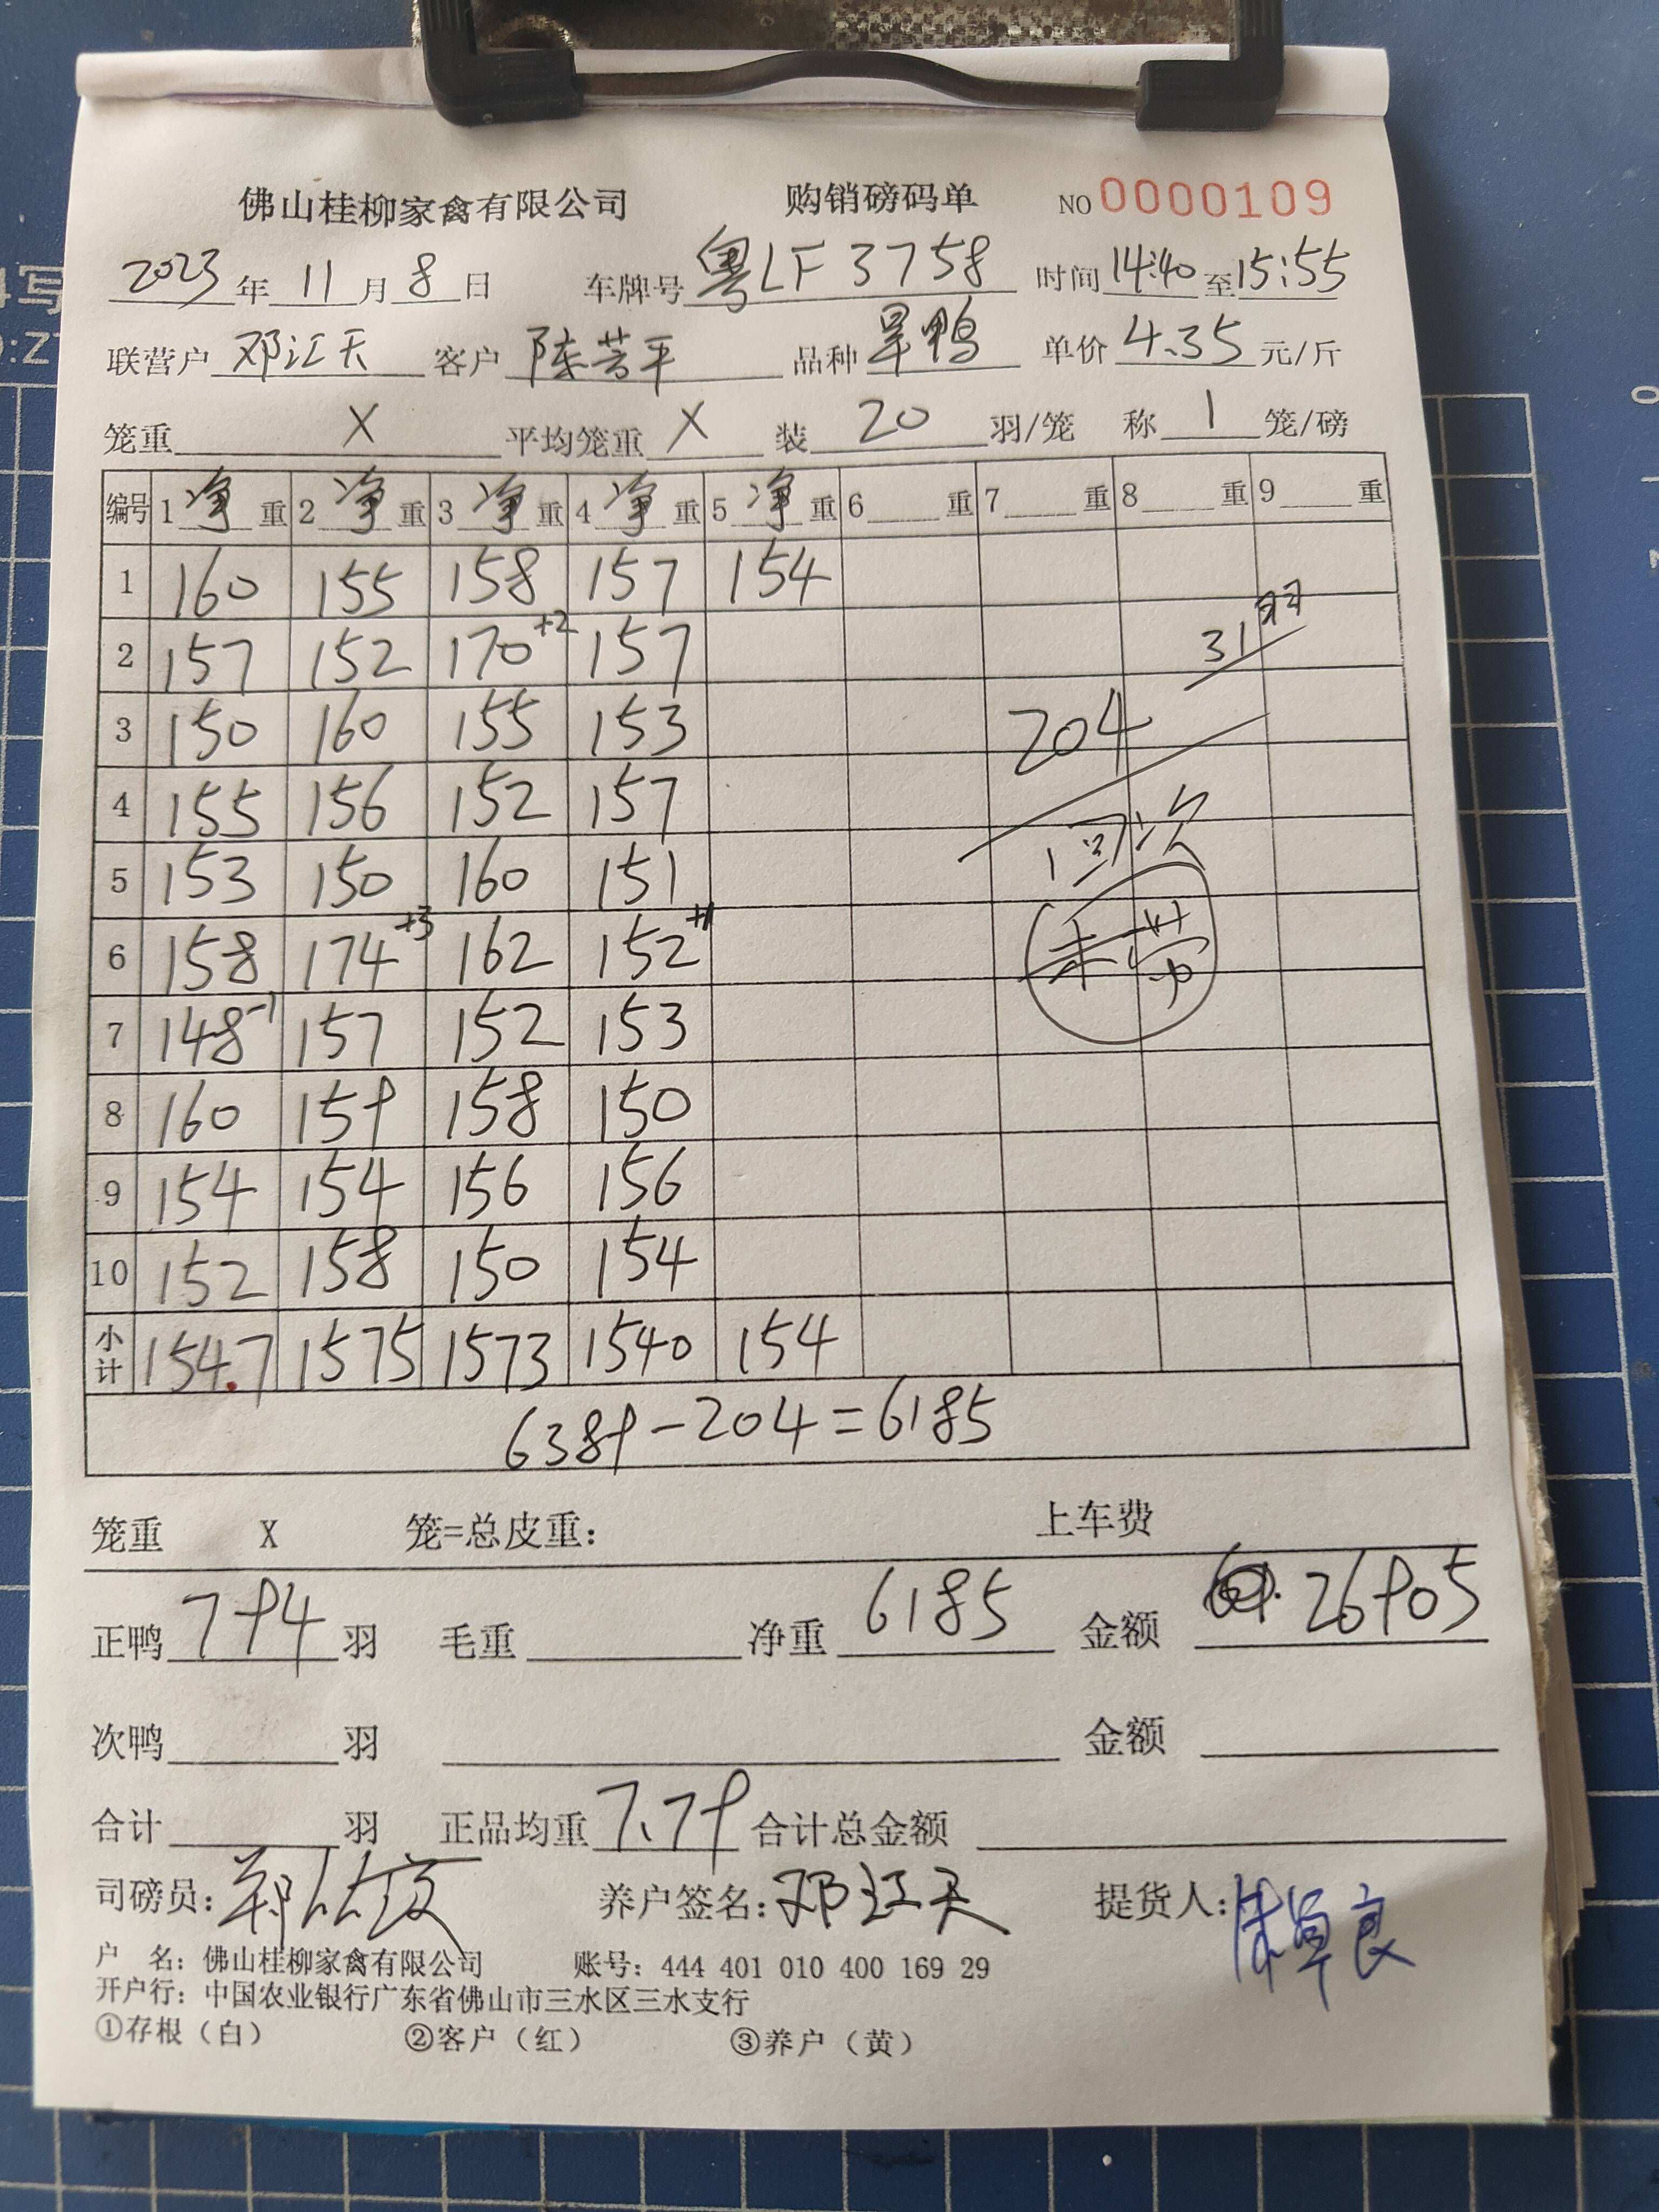 佛山桂柳家禽有限公司 购销磅码单 NO 0000109
2023 年 11 月 8 日 车牌号 粤LF3758 时间 14:40 至 15:55
联营户 邓江天 客户 陈芳平 品种 旱鸭 单价 4.35 元/斤
笼重 X 平均笼重 X 装 20 羽/笼 称 1 笼/磅
编号 1 净 重 2 净 重 3 净 重 4 净 重 5 净 重 6 重 7 重 8 重 9 重
1 160 155 158 157 154
2 157 152 170+2 157 31羽
3 150 160 155 153 204
4 155 156 152 157 回次
5 153 150 160 151
6 158 174+3 162 152+1 未劳
7 148-1 157 152 153
8 160 159 158 150
9 154 154 156 156
10 152 158 150 154
小计 154.7 1575 1573 1540 154
6389-204=6185
笼重 X 笼=总皮重: 上车费
正鸭 794 羽 毛重 净重 6185 金额 26905
次鸭 羽 金额
合计 羽 正品均重 7.79 合计总金额
司磅员: 养户签名: 邓江天 提货人:
户 名: 佛山桂柳家禽有限公司 账号: 444 401 010 400 169 29
开户行: 中国农业银行广东省佛山市三水区三水支行
①存根（白） ②客户（红） ③养户（黄）